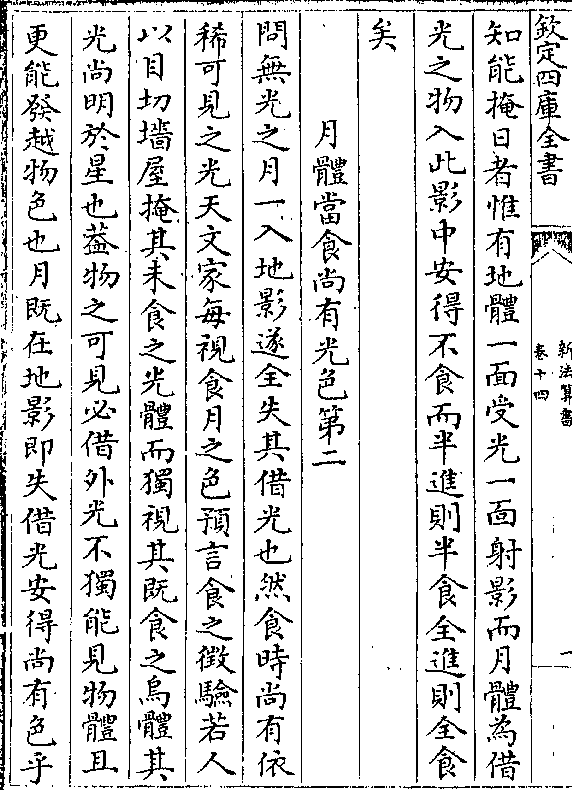 欽定四庫全書
新法算書
卷十四
一
知能掩日者惟有地體一面受光一面射影而月體為借
光之物入此影中安得不食而半進則半食全進則全食
矣
月體當食尚有光色第二
問無光之月一入地影遂全失其借光也然食時尚有依
稀可見之光天文家每視食月之色預言食之徵驗若人
以目切墻屋掩其未食之光體而獨視其既食之烏體其
光尚明於星也葢物之可見必借外光不獨能見物體且
更能發越物色也月既在地影即失借光安得尚有色乎